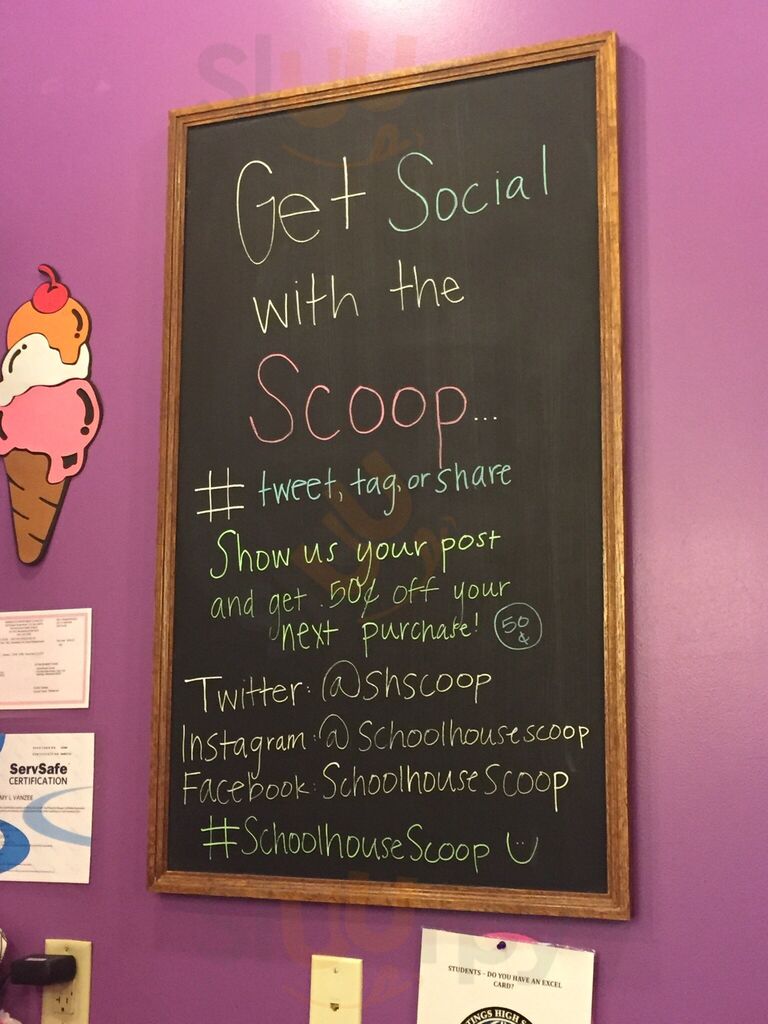 Get Social
with the
Scoop...
# tweet, tag, or share
Show us your post
and get .50¢ off your
next purchase! 50¢
Twitter: @shscoop
Instagram: @Schoolhousescoop
Facebook: SchoolhouseScoop
#SchoolhouseScoop
ServSafe
CERTIFICATION
MY L VANZEE
STUDENTS - DO YOU HAVE AN EXCEL
CARD?
TINGS HIGH S